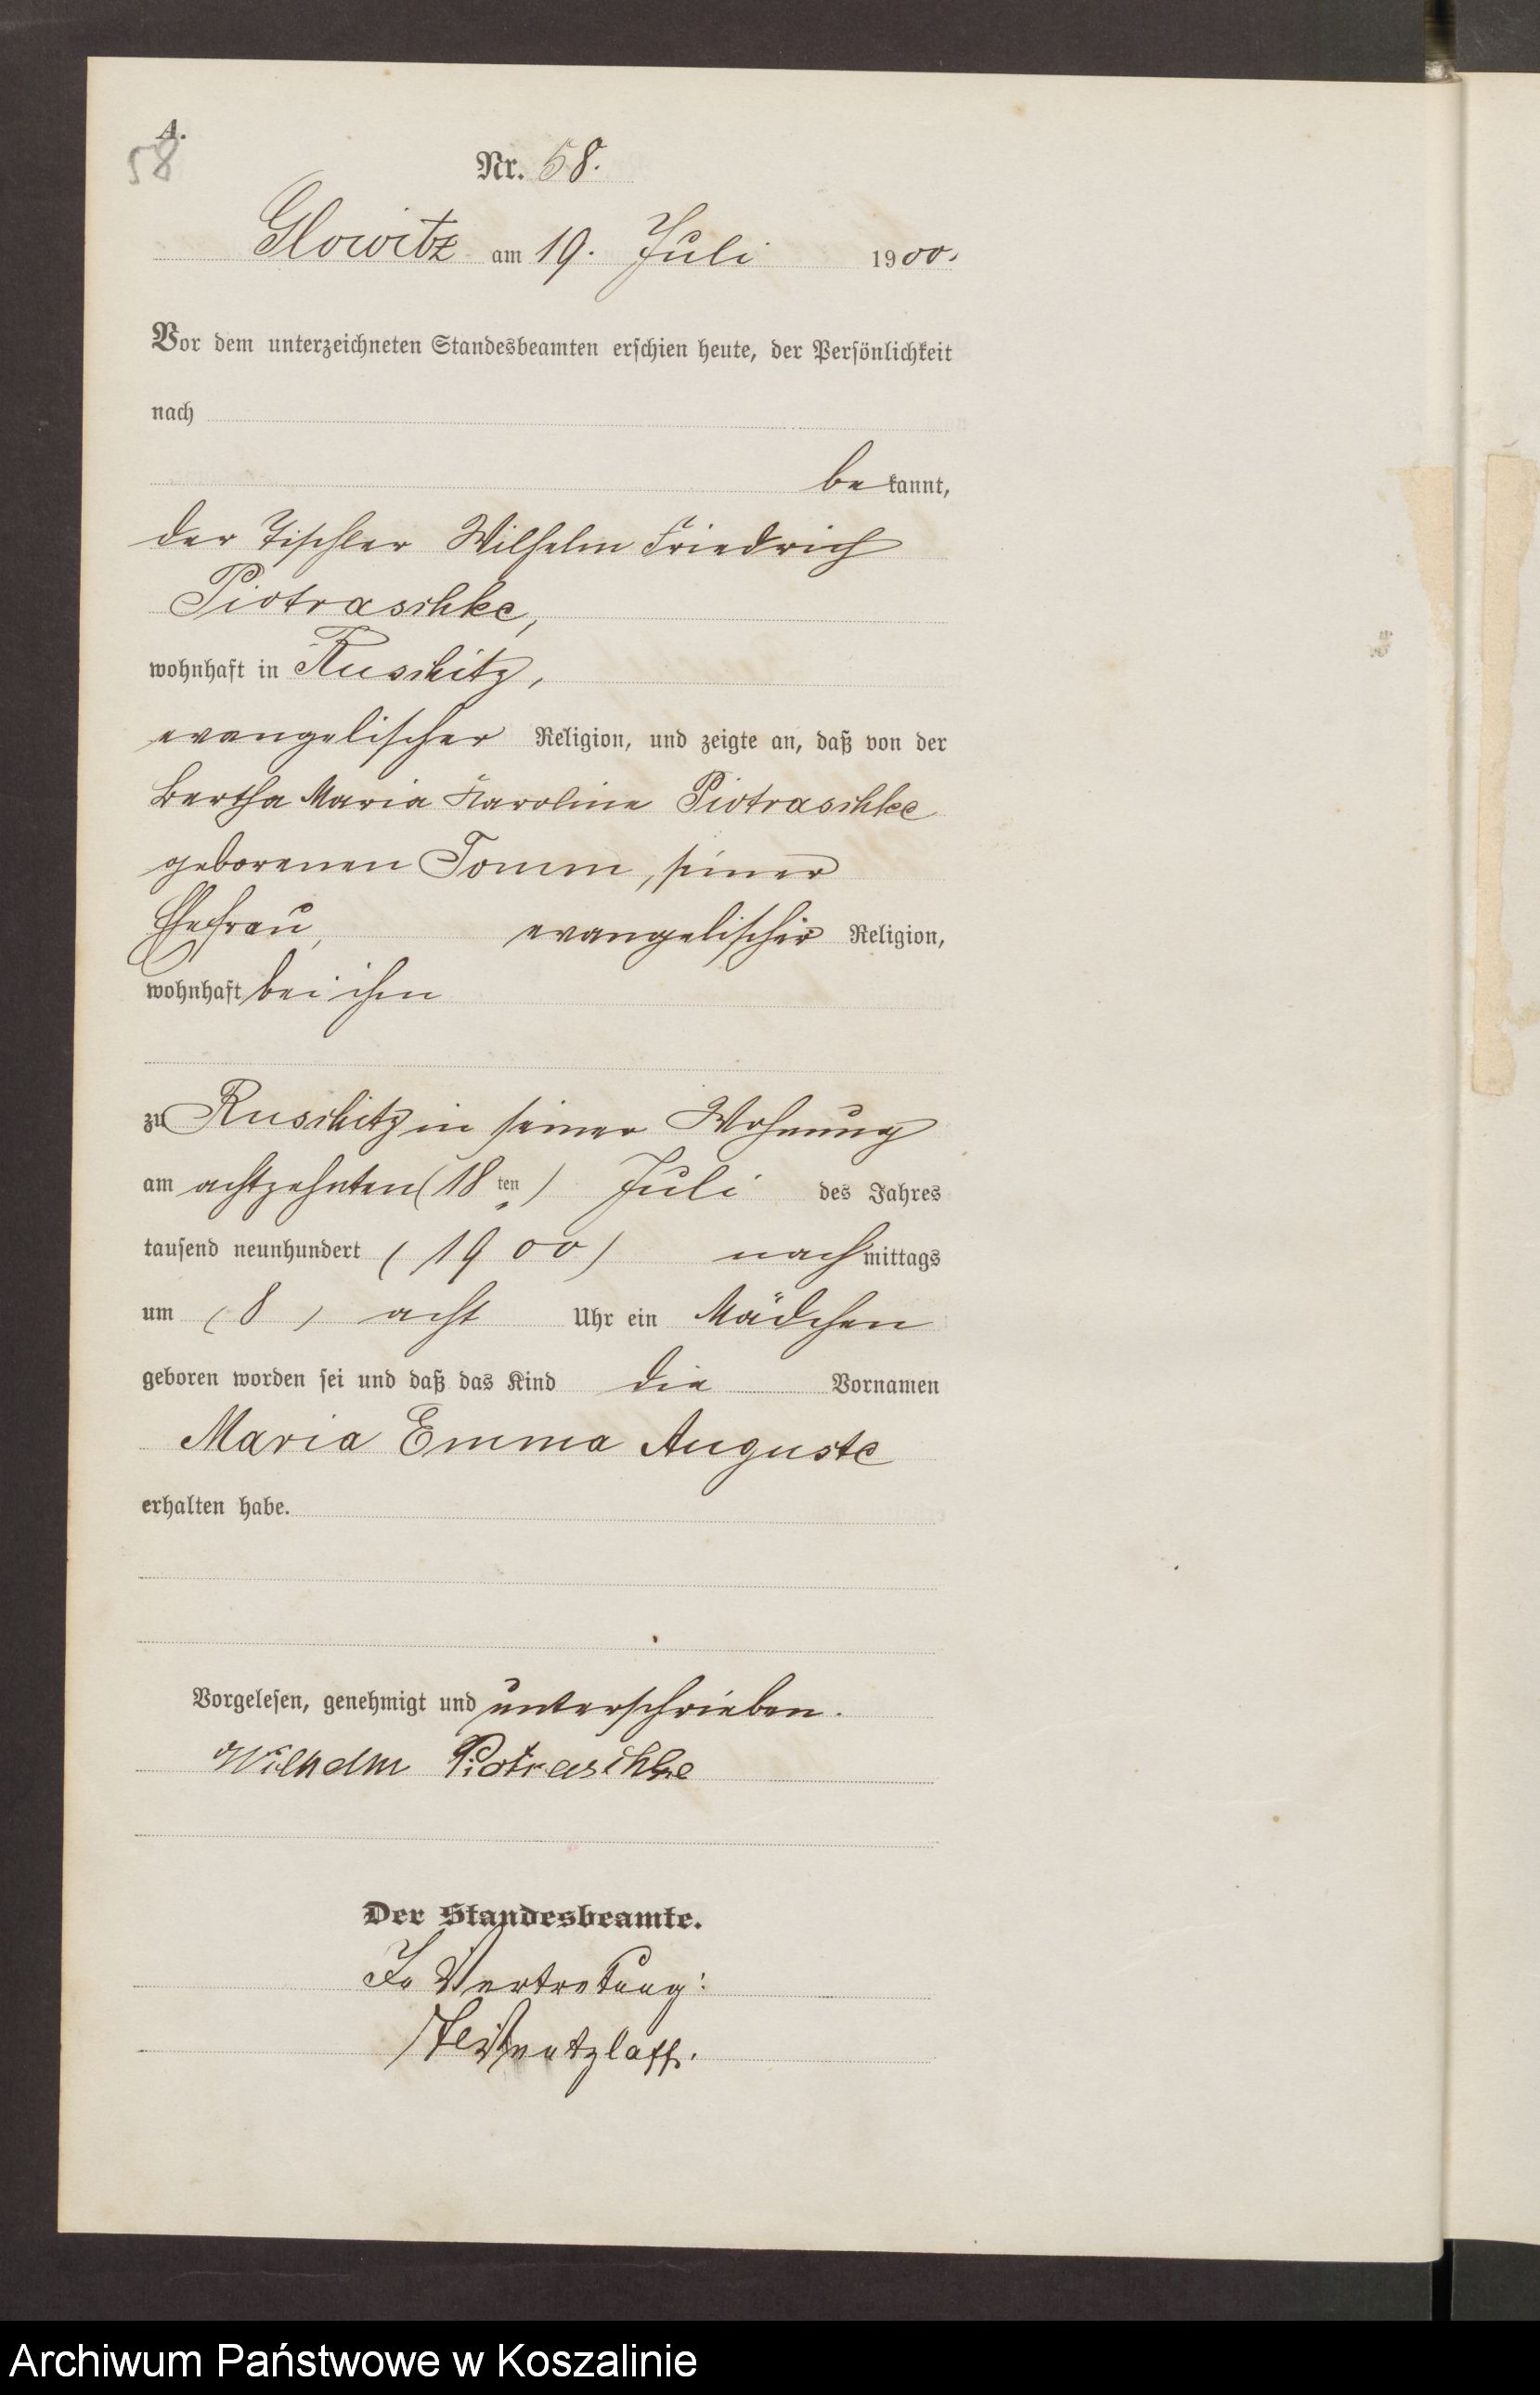 A.
58
Nr. 58.
Glowitz am 19. Juli 1900.
Vor dem unterzeichneten Standesbeamten erschien heute, der Persönlichkeit
nach
be kannt,
der Tischler Wilhelm Friedrich
Piotraschke,
wohnhaft in Ruschitz,
evangelischer Religion, und zeigte an, daß von der
Bertha Maria Karoline Piotraschke
geborenen Tomm, seiner
Ehefrau, evangelischer Religion,
wohnhaft bei ihm
zu Ruschitz in seiner Wohnung
am achtzehnten (18ten) Juli des Jahres
tausend neunhundert (1900) nachmittags
um (8) acht Uhr ein Mädchen
geboren worden sei und daß das Kind die Vornamen
Maria Emma Auguste
erhalten habe.
Vorgelesen, genehmigt und unterschrieben.
Wilhelm Piotraschke
Der Standesbeamte.
In Vertretung:
Archiwum Państwowe w Koszalinie